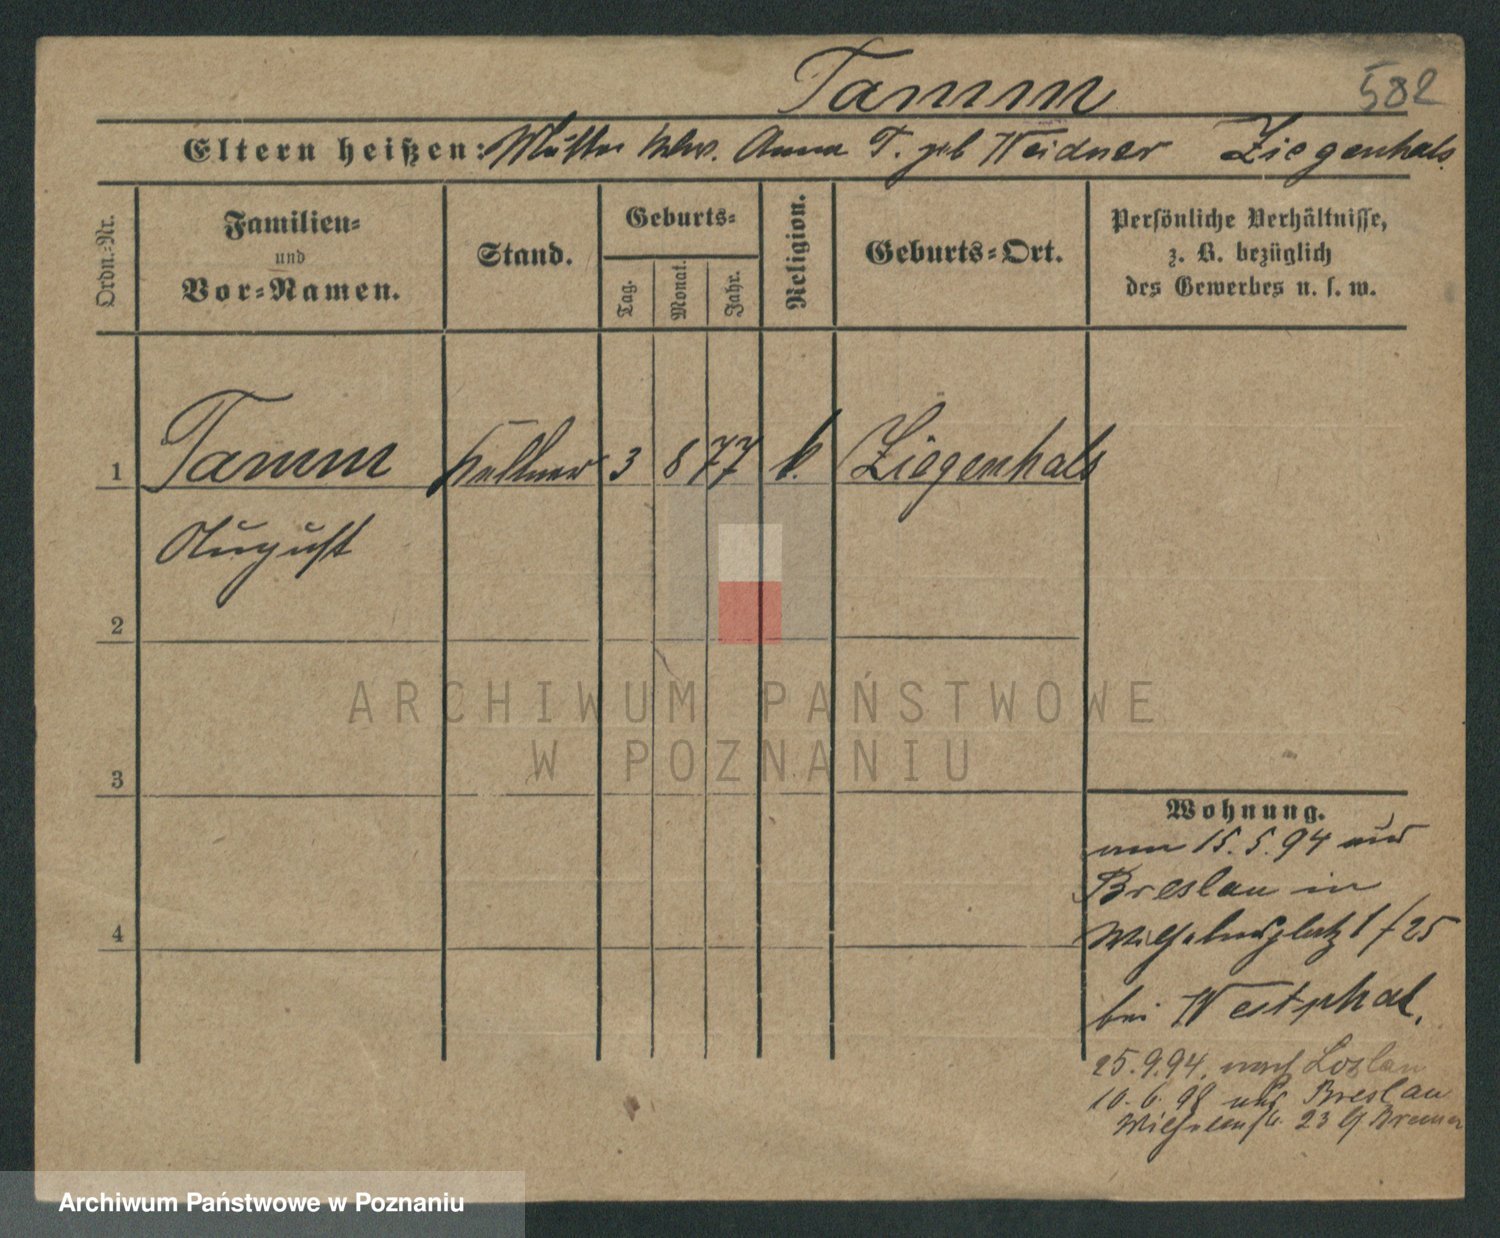 Tamm 582
Eltern heißen: Mutter Anna T. geb Weidner Ziegenhals.
Ordn.-Nr.
Familien-
und
Vor-Namen.
Stand.
Geburts-
Tag.
Monat.
Jahr.
Religion.
Geburts-Ort.
Persönliche Verhältnisse,
z. B. bezüglich
des Gewerbes u. s. w.
1 Tamm Kellner 3 8 77 k. Ziegenhals
August
2
ARCHIWUM PAŃSTWOWE
W POZNANIU
3
Wohnung.
am 15.5.94 aus
Breslau in
Wilhelmsplatz 1/25
4
bei Westphal.
25.9.94. nach Loslau
10.6.98 aus Breslau
23
Archiwum Państwowe w Poznaniu